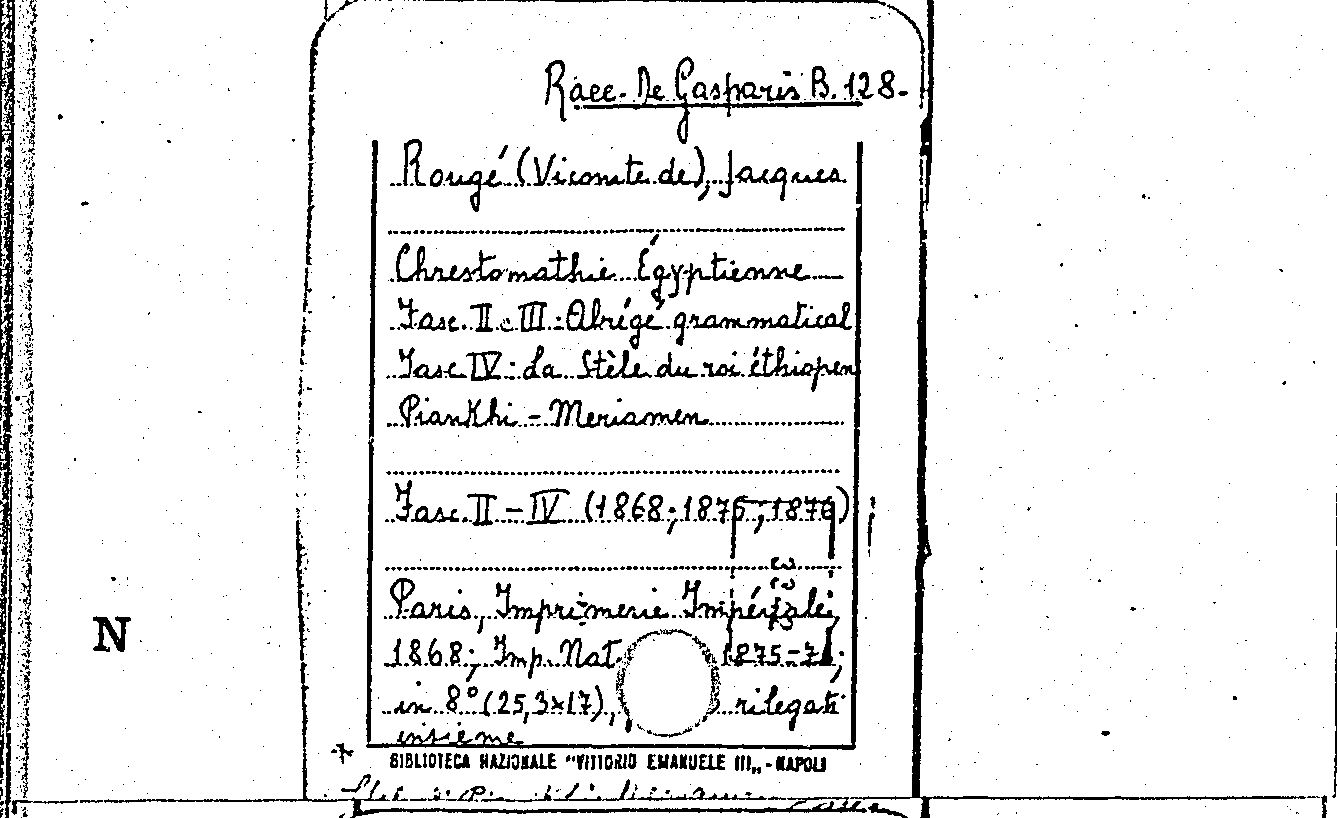 Racc. De Gasparis B. 128-
Rougé (Vicomte de), Jacques
Chrestomathie Égyptienne
Fasc. II e III: Abrégé grammatical
Fasc IV: La Stèle du roi éthiopen
Piankhi - Meriamen
Fasc. II - IV (1868; 1875; 1876)
Paris, Imprimerie Impériale,
1868; Imp. Nat 1875-76;
N
in 8° (25,3x17), rilegati
insieme
BIBLIOTECA NAZIONALE "VITTORIO EMANUELE III„ - NAPOLI